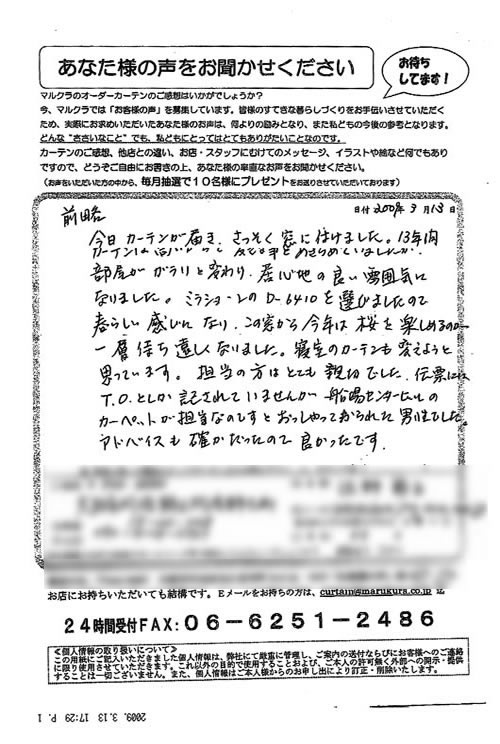 あなた様の声をお聞かせください
お待ち
してます!
マルクラのオーダーカーテンのご感想はいかがでしょうか?
今、マルクラでは「お客様の声」を募集しています。皆様のすてきな暮らしづくりをお手伝いさせていただく
ため、実際にお求めいただいたあなた様のお声は、何よりの励みとなり、また私どもの今後の参考となります。
どんな“ささいなこと”でも、私どもにとってはとてもありがたいことなのです。
カーテンのご感想、他店との違い、お店・スタッフにむけてのメッセージ、イラストや絵など何でもあり
ですので、どうぞご自由にお書きの上、あなた様の率直なお声をお聞かせください。
(お声をいただいた方の中から、毎月抽選で10名様にプレゼントをお送りさせていただいております)
前略
日付 2009年 3 月 13 日
今日カーテンが届き、さっそく窓に付けました。13年間
部屋がガラリと変わり、居心地の良い雰囲気に
なりました。ミラショーンのD-6410を選びましたので
春らしい感じになり、この窓から今年は桜を楽しめるのが
一層待ち遠しくなりました。寝室のカーテンも変えようと
思っています。担当の方はとても親切でした。伝票には
T.O.としか記されていませんが船場センタービルの
カーペットが担当なのですとおっしゃっておられた男性でした。
アドバイスも確かだったので良かったです。
お店にお持ちいただいても結構です。Eメールをお持ちの方は、curtain@marukura.co.jp
24時間受付FAX:06-6251-2486
<個人情報の取り扱いについて>
この用紙にご記入いただきました個人情報は、弊社にて厳重に管理し、ご案内の送付ならびにお客様へのご連絡
に限り使用させていただきます。これ以外の目的で使用することおよび、ご本人の許可無く外部への開示・提供
することは一切ございません。また、個人情報はご本人様からのお申し出により訂正・削除いたします。
2009. 3.13 17:29 P. 1